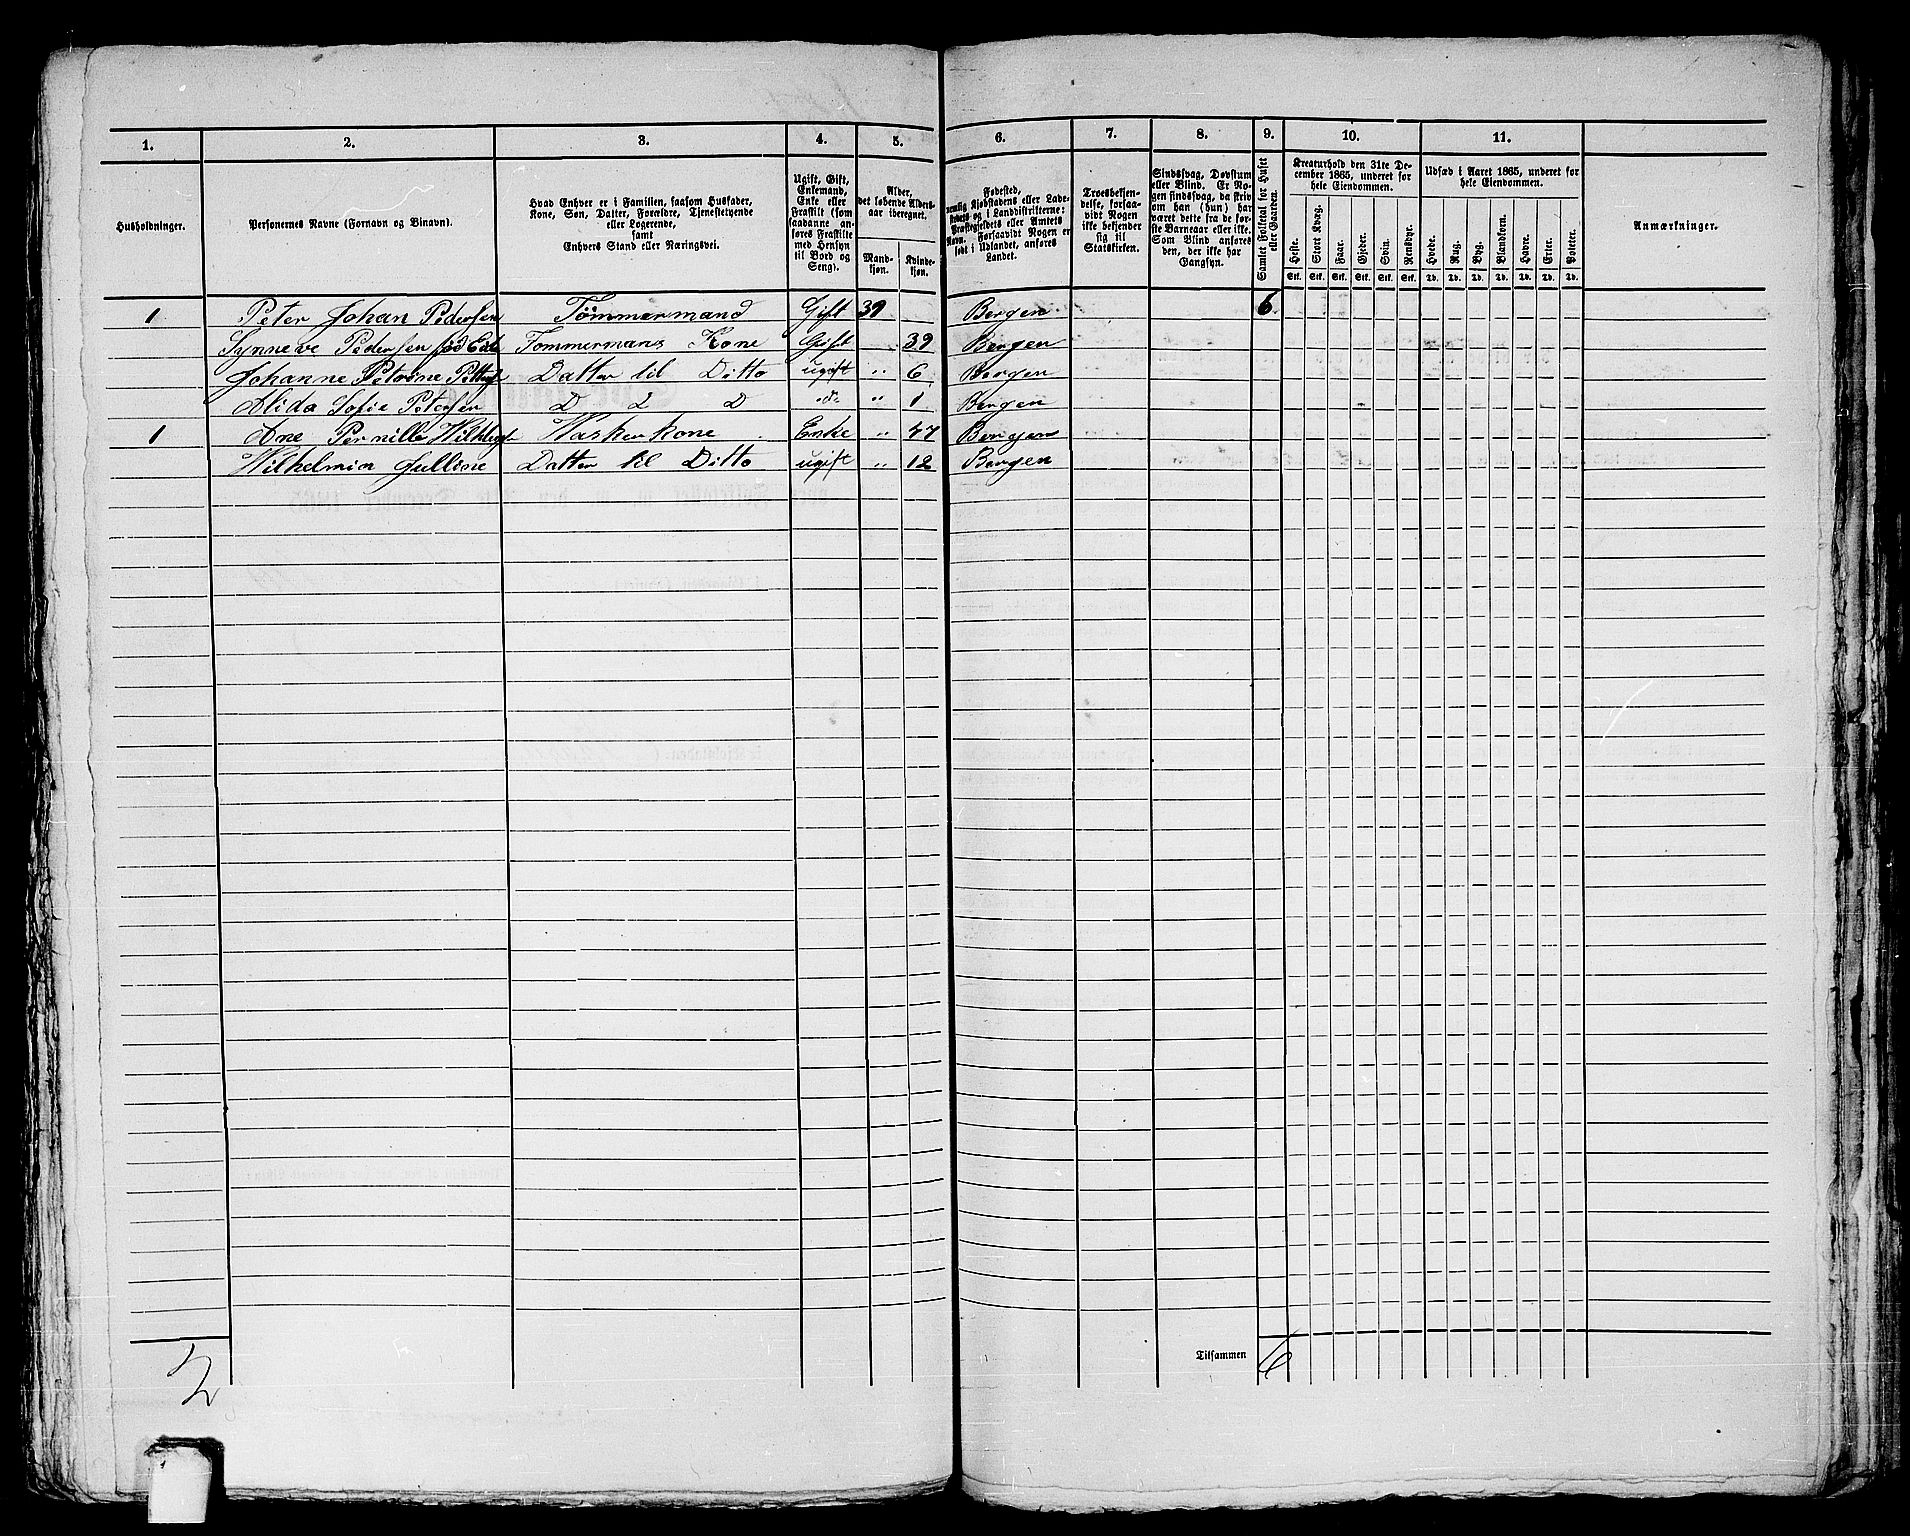 1. 2. 3. 4. 5. 6. 7. 8. 9. 10. 11.
Husholdninger.
Personernes Navne (Fornavn og Binavn).
Hvad Enhver er i Familien, saasom Husfader,
Kone, Søn, Datter, Forældre, Tjenestetyende
eller Logerende,
samt
Enhvers Stand eller Næringsvei.
Ugift, Gift,
Enkemand,
Enke eller
Fraskilt (som
saadanne an-
føres Fraskilte
med Hensyn
til Bord og
Seng).
Alder,
det løbende Alders-
aar iberegnet.
Mand-
kjøn.
Kvinde-
kjøn.
Fødested,
nemlig Kjøbstadens eller Lade-
stedets og i Landdistrikterne:
Præstegjeldets eller Amtets
Navn. Forsaavidt Nogen er
født i Udlandet, anføres
Landet.
Troesbekjen-
delse, forsaa-
vidt Nogen
ikke bekjender
sig til
Statskirken.
Sindssvag, Døvstum
eller Blind. Er No-
gen sindssvag, da skriv
om han (hun) har
været dette fra de før-
ste Barneaar eller ikke.
Som Blind anføres
den, der ikke har
Gangsyn.
Samlet Folketal for Huset
eller Gaarden.
Kreaturhold den 31te De-
cember 1865, underet for
hele Eiendommen.
Heste. Stort Kvæg. Faar. Gjeder. Svin. Rensdyr.
Stk. Stk. Stk. Stk. Stk. Stk.
Udsæd i Aaret 1865, underet for
hele Eiendommen.
Hvede. Rug. Byg. Blandkorn. Havre. Erter. Poteter.
Td. Td. Td. Td. Td. Td. Td.
Anmærkninger.
1 Peter Johan Pedersen Tømmermand Gift 39 Bergen 6
Synneve Pedersen fød Tømmermans Kone Gift 39 Bergen
Johanne Petrine Datter til Ditto ugift " 6 Bergen
Alida Sofie Petersen D D do " 1 Bergen
1 Ane Pernille Waskerkone Enke " 47 Bergen
Wilhelmin Julline Datter til Ditto ugift " 12 Bergen
Tilsammen 6
2